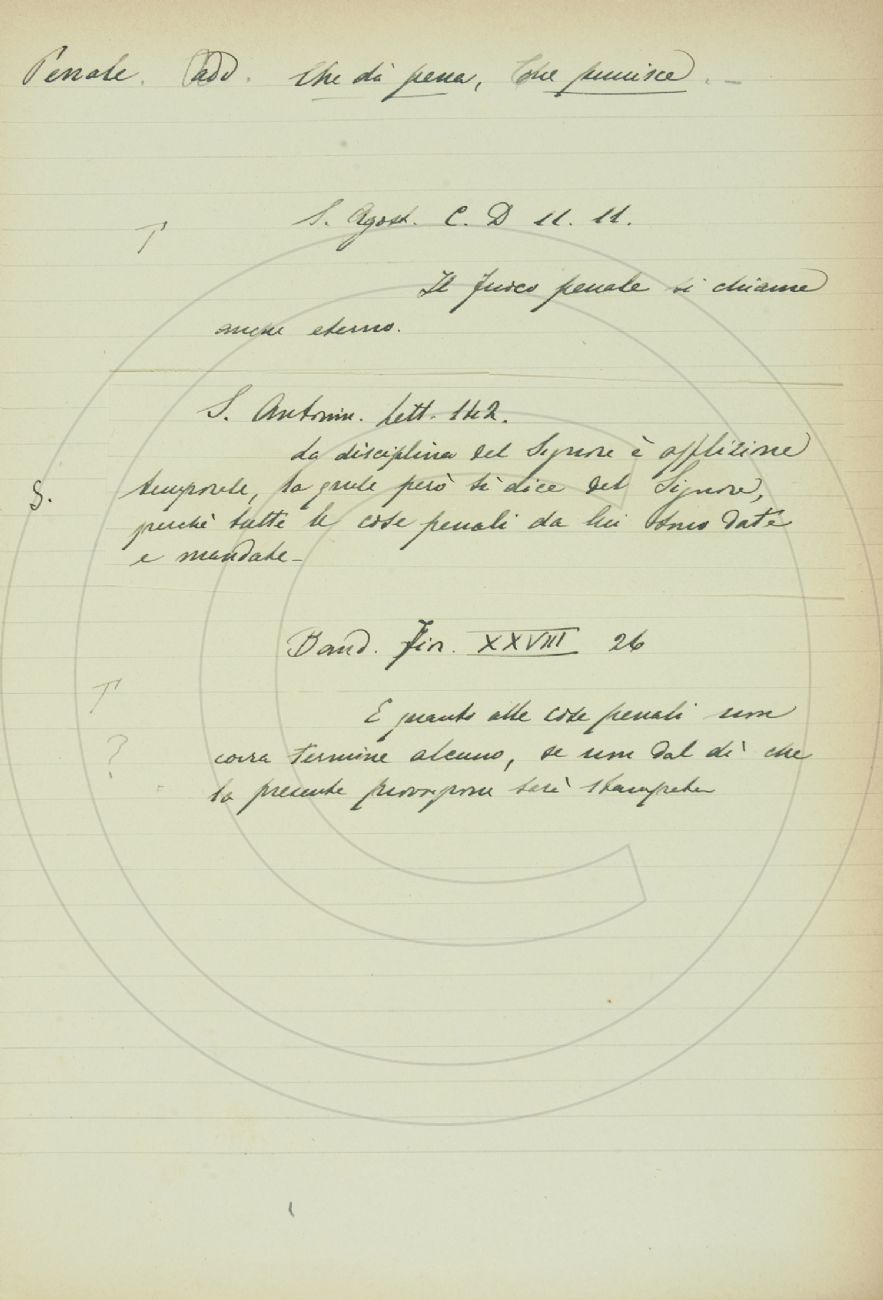 Penale. add. che dà pena, che punisce. –
T
S. Agost. C. D 11. 11.
Il fuoco penale si chiama
anche eterno.
S. Antonin. lett. 142.
La disciplina del Signore è afflizione
S. temporale, la quale però si dice del Signore,
perchè tutte le cose penali da lui sono date
e mandate –
Band. Fior. XXVIII 26
T
E quanto alle cose penali non
?
corra termine alcuno, se non dal dì che
la presente provvisione sarà stampata